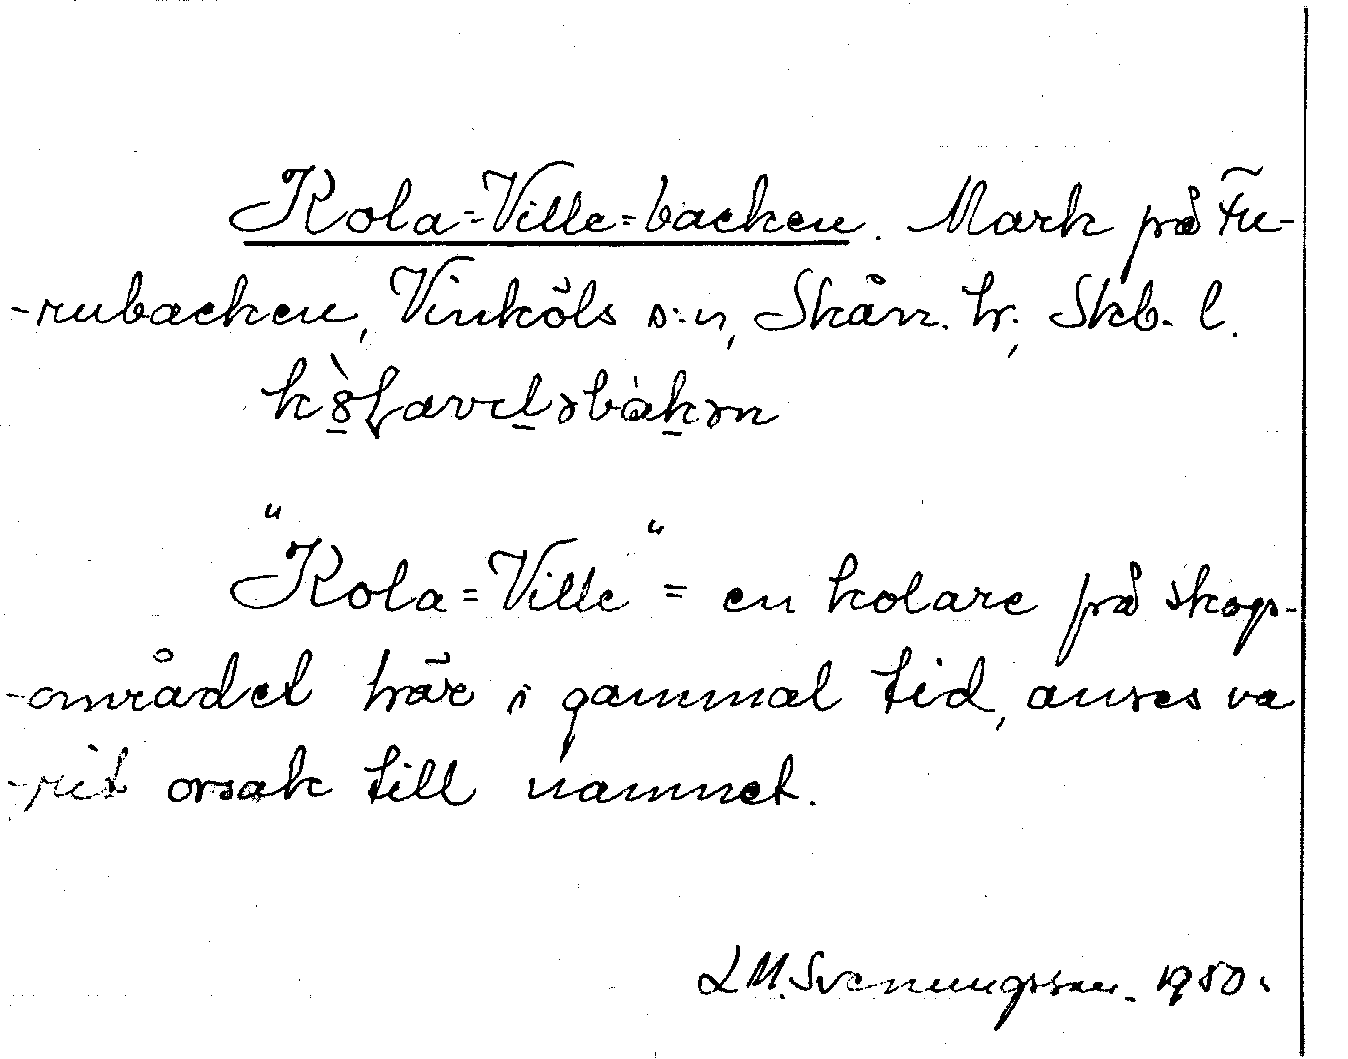 Kola-Ville-backen. Mark på Fu-
-rubacken, Vinköls s:n, Skån. hr, Skb. l.
"Kola-Ville" = en kolare på skogs-
-området här i gammal tid, anses va
-rit orsak till namnet.
L M. Svenungsson. 1950.